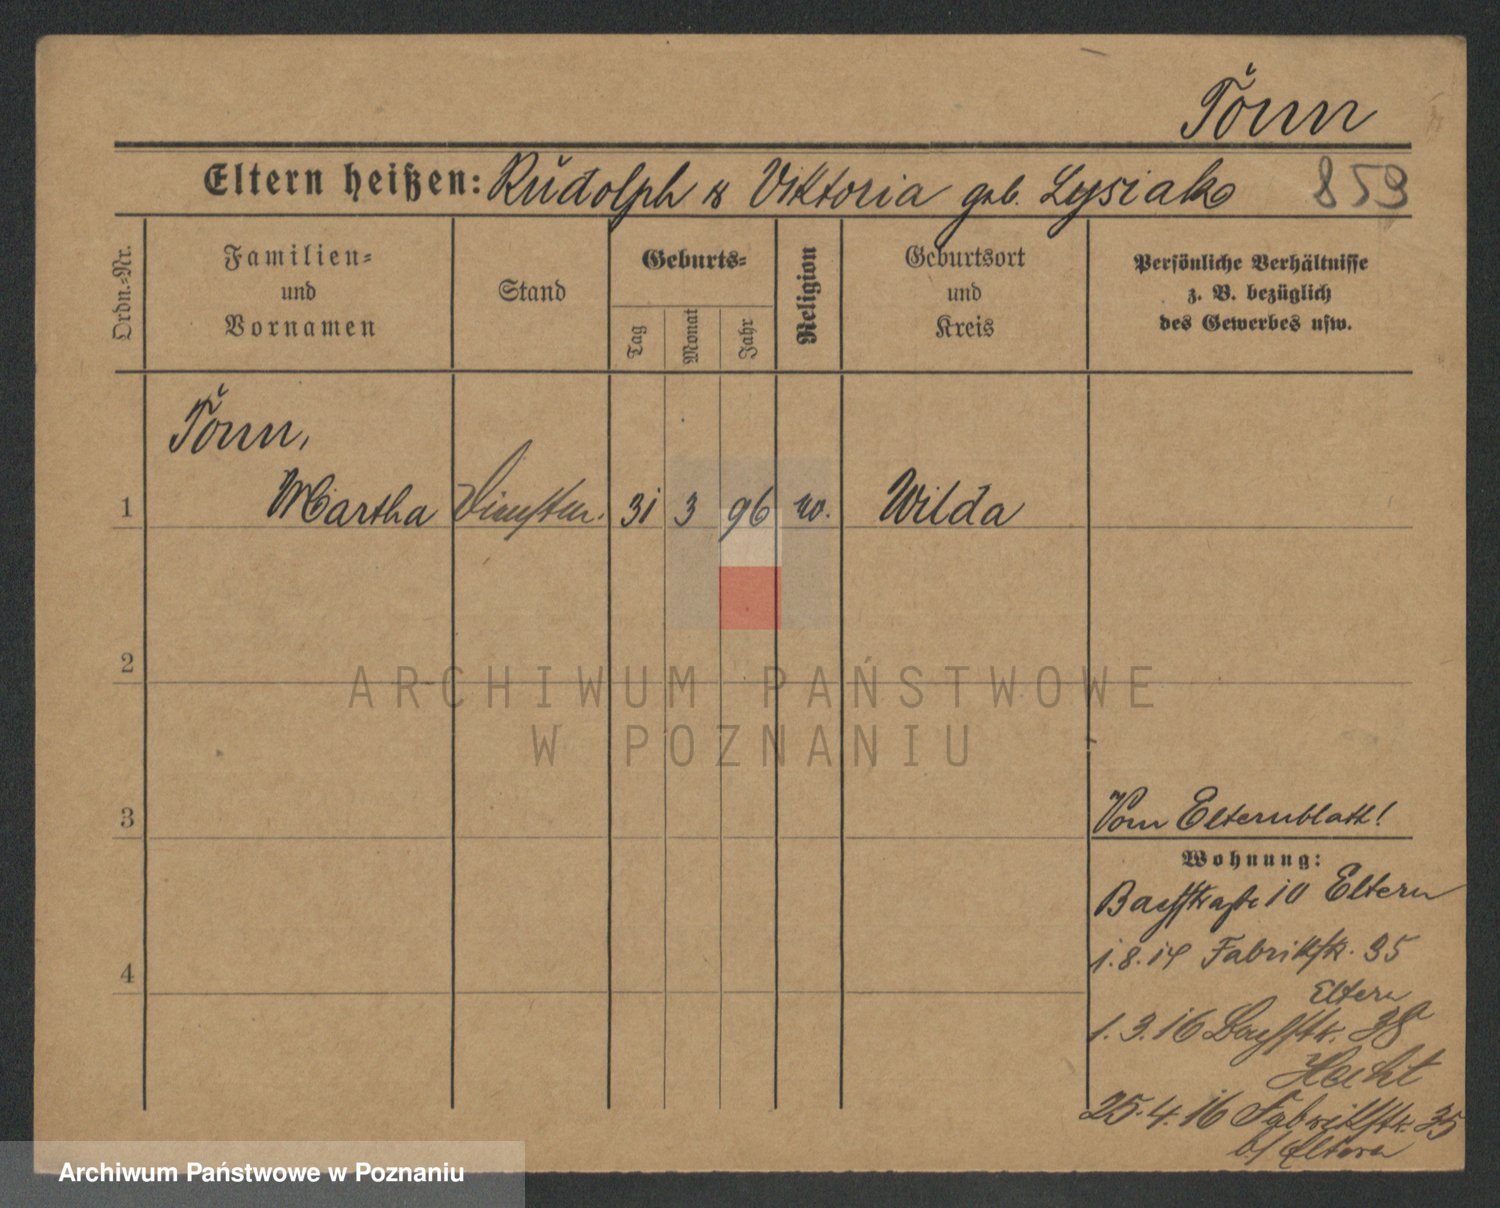 Tönn
Eltern heißen: Rudolph & Viktoria geb. Lysiak
859
Ordn.-Nr.
Familien-
und
Vornamen
Stand
Geburts-
Tag
Monat
Jahr
Religion
Geburtsort
und
Kreis
Persönliche Verhältnisse
z. B. bezüglich
des Gewerbes usw.
Tönn,
1 Martha 31 3 96 Wilda
2
ARCHIWUM PAŃSTWOWE
W POZNANIU
3
Vom Elternblatt!
Wohnung:
10 Eltern
4
1.8.14 Fabrikstr. 35
Eltern
1.3.16 38
Hecht
25.4.16 Fabrikstr. 35
b/ Eltern
Archiwum Państwowe w Poznaniu